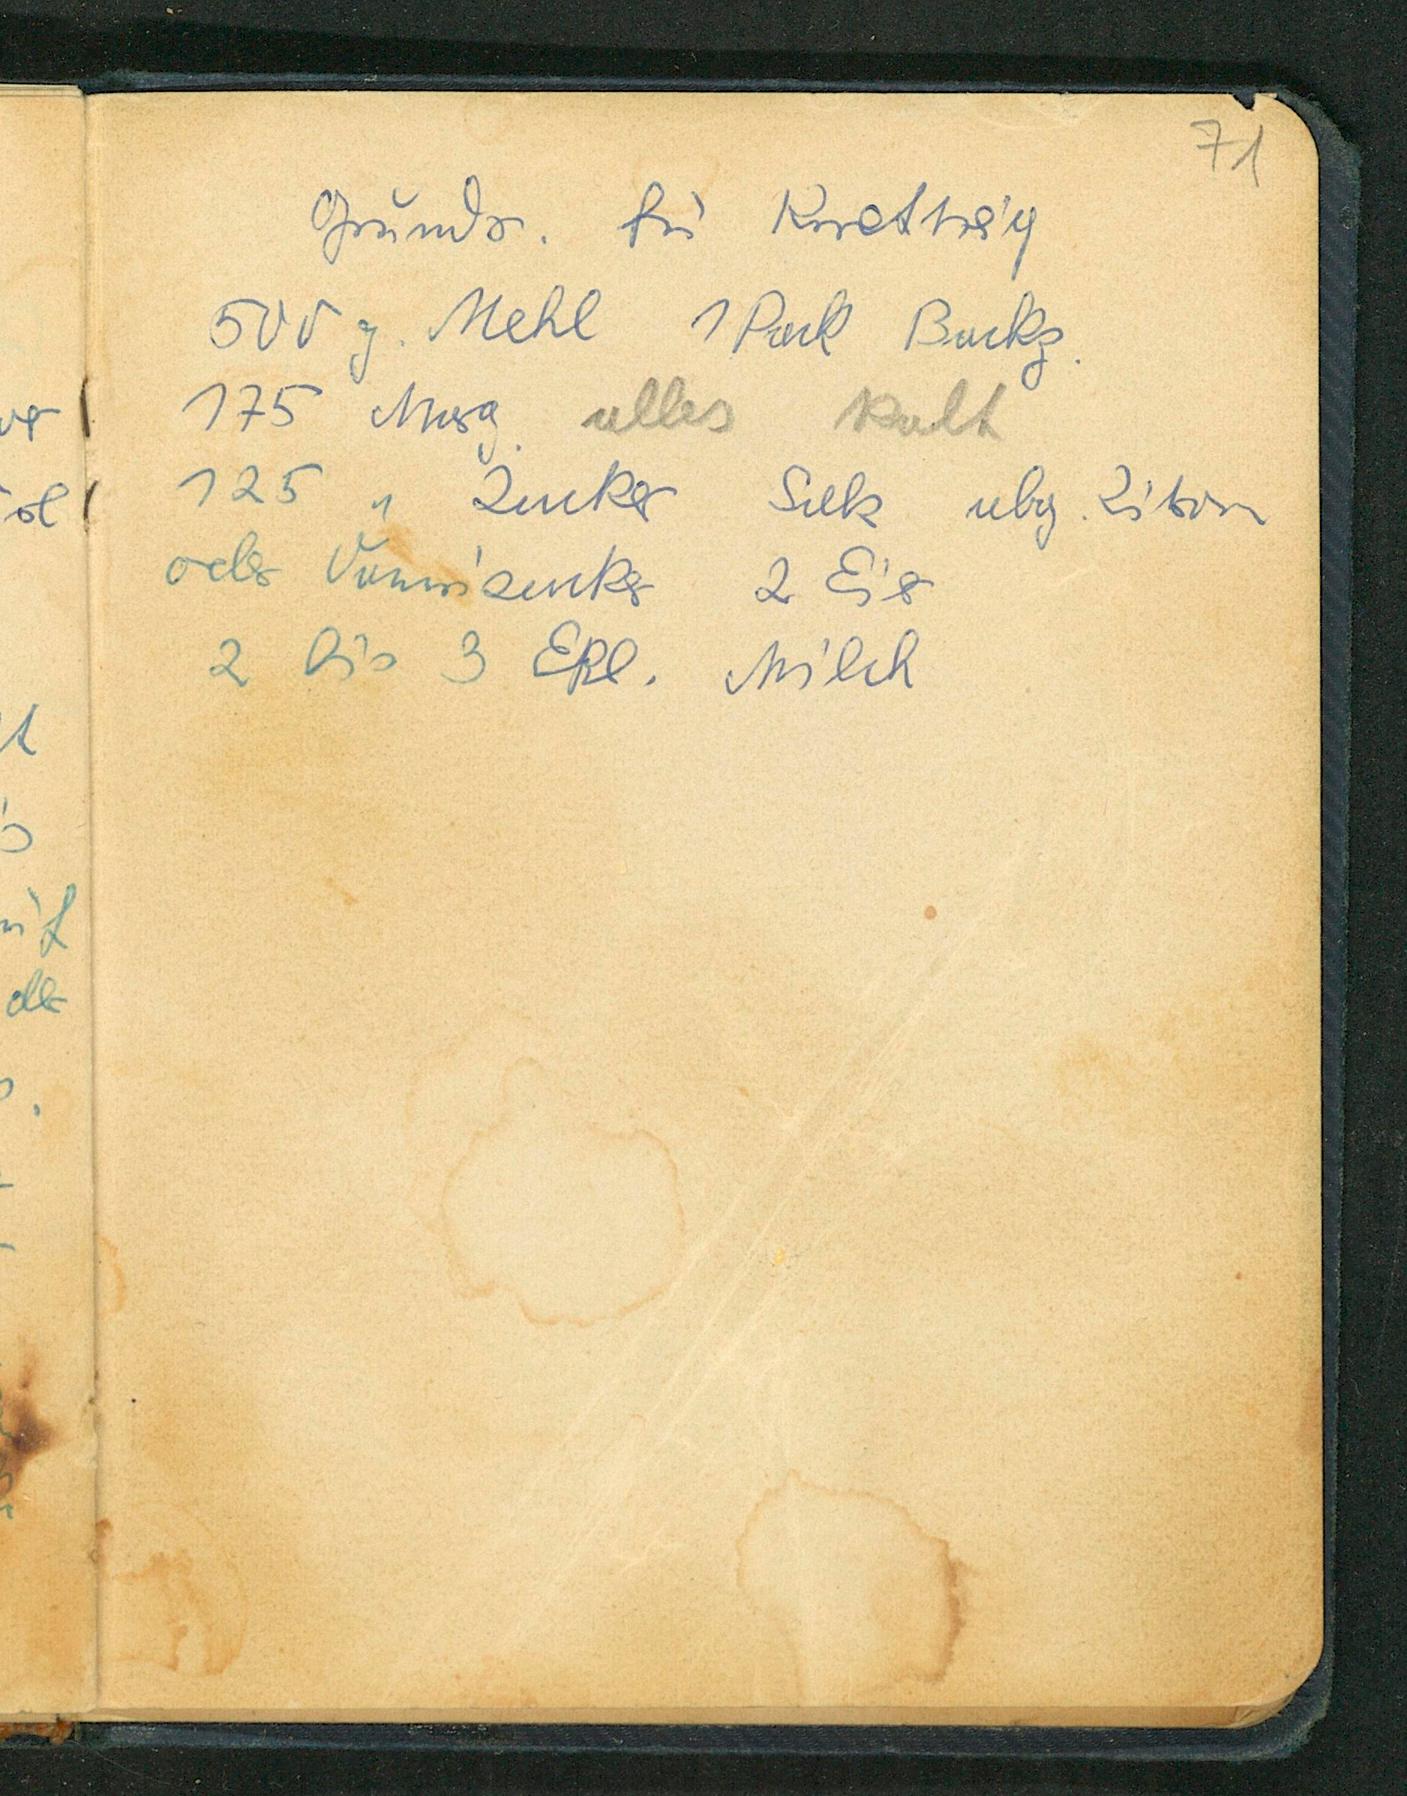 71
Grundr. für Knetteig
500 g. Mehl 1 Pack Backp.
175 Marg. alles kalt
125 " Zucker Salz abg. Zitron
oder Vannizucker 2 Eier
2 bis 3 Eßl. Milch